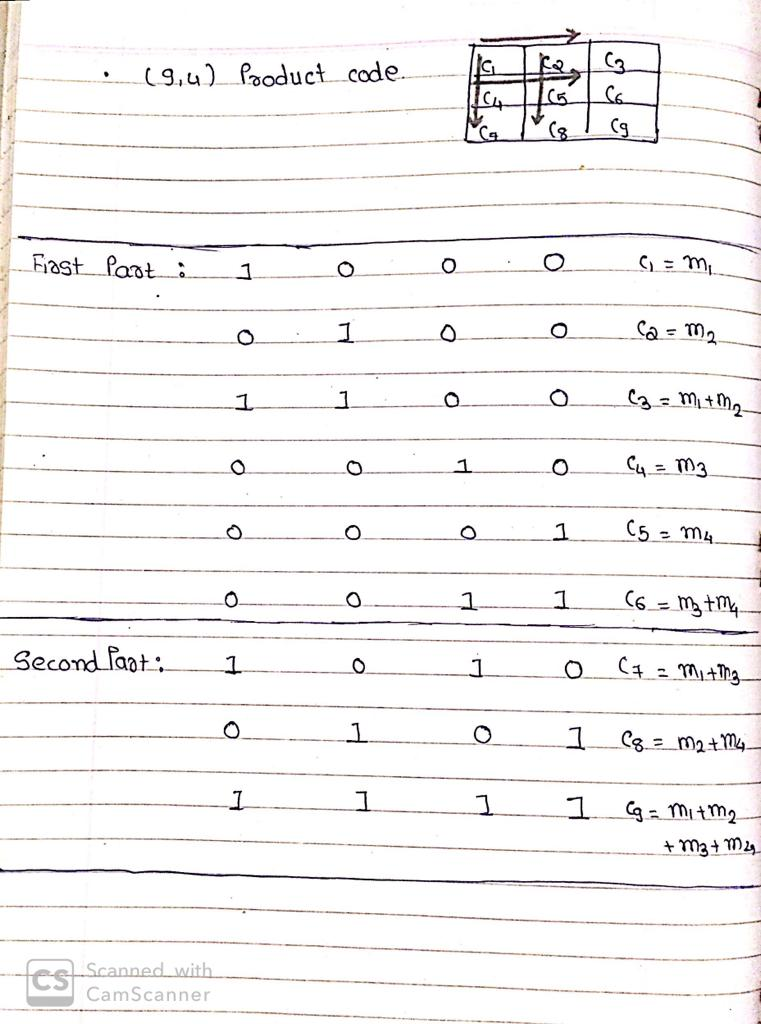 • (9,4) Product code.
C1 C2 C3
C4 C5 C6
C7 C8 C9
First Part : 1 0 0 0 C1 = m1
0 1 0 0 C2 = m2
1 1 0 0 C3 = m1+m2
0 0 1 0 C4 = m3
0 0 0 1 C5 = m4
0 0 1 1 C6 = m3+m4
Second Part : 1 0 1 0 C7 = m1+m3
0 1 0 1 C8 = m2+m4
1 1 1 1 C9 = m1+m2
+ m3+m4
CS Scanned with
CamScanner